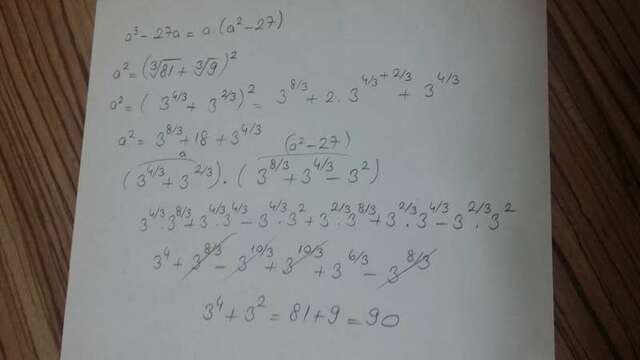 a³ - 27a = a (a² - 27)
a² = (∛81 + ∛9)²
a² = (3^4/3 + 3^2/3)² = 3^8/3 + 2·3^4/3+2/3 + 3^4/3
a² = 3^8/3 + 18 + 3^4/3
a (a² - 27)
(3^4/3 + 3^2/3) · (3^8/3 + 3^4/3 - 3²)
3^4/3·3^8/3 + 3^4/3·3^4/3 - 3^4/3·3² + 3^2/3·3^8/3 + 3^2/3·3^4/3 - 3^2/3·3²
3⁴ + 3^8/3 - 3^10/3 + 3^10/3 + 3^6/3 - 3^8/3
3⁴ + 3² = 81 + 9 = 90